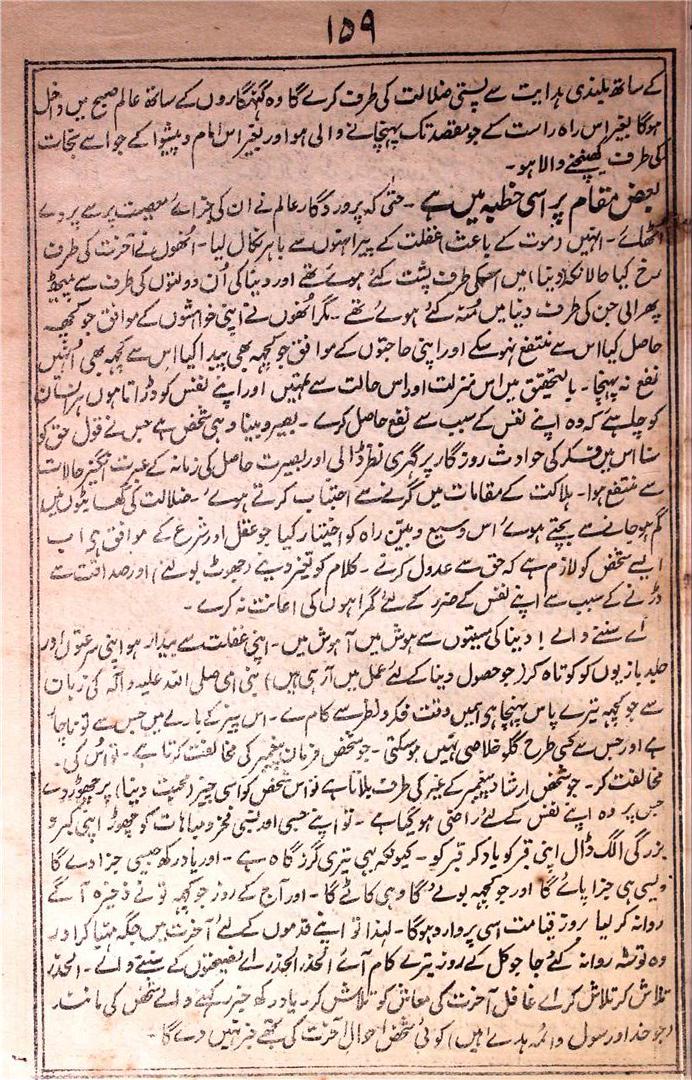 ۱۵۹
کے ساتھ بلندی ہدایت سے پستی ضلالت کی طرف کرے گا وہ گنہگاروں کے ساتھ عالم صبح میں داخل
ہوگا بغیر اس راہ راست کے جو مقصد تک پہنچانے والی ہو اور بغیر اس امام و پیشوا کے جو اسے نجات
کی طرف کھینچنے والا ہو۔
بعض مقام پر اسی خطبہ میں ہے۔ حتٰی کہ پروردگار عالم نے ان کی جزائے معصیت پر سے پردے
اٹھائے۔ انہیں (موت کے باعث) غفلت کے پیراہنوں سے باہر نکال لیا۔ انھوں نے آخرت کی طرف
رخ کیا حالانکہ (دنیا) میں اسکی طرف پشت کئے ہوئے تھے اور دنیا کی اُن دولتوں کی طرف سے پیٹھ
پھرالی جن کی طرف دنیا میں مُنہ کئے ہوئے تھے۔ مگر انھوں نے اپنی خواہشوں کے موافق جو کچھ
حاصل کیا اس سے منتفع نہو سکے اور اپنی حاجتوں کے موافق جو کچھ بھی پیدا کیا اس سے کچھ بھی اُنہیں
نفع نہ پہنچا۔ بالتحقیق میں اس منزلت اور اس حالت سے تمہیں اور اپنے نفس کو ڈراتا ہوں ہر انسان
کو چاہئے کہ وہ اپنے نفس کے سبب سے نفع حاصل کرے۔ بصیر و بینا وہی شخص ہے جس نے قول حق کو
سنا اس میں فکر کی حوادث روزگار پر گہری نظر ڈالی اور بصیرت حاصل کی زمانہ کے عبرت انگیز حالات
سے منتفع ہوا۔ ہلاکت کے مقامات میں گرنے سے اجتناب کرتے ہوئے۔ ضلالت کی گھاٹیوں میں
گم ہو جانے سے بچتے ہوئے اس وسیع و بیّن راہ کو اختیار کیا جو عقل اور شرع کے موافق ہی اب
ایسے شخص کو لازم ہے کہ حق سے عدول کرنے۔ کلام کو تغیر دینے (جھوٹ بولنے) اور صداقت سے
ڈرنے کے سبب سے اپنے نفس کے ضرر کے لئے گمراہوں کی اعانت نہ کرے۔
اے سننے والے! دنیا کی مستیوں سے ہوش میں آ ہوش میں۔ اپنی غفلت سے بیدار ہو اپنی سرعتوں اور
جلد بازیوں کو کوتاہ کر (جو حصول دنیا کے لئے عمل میں آرہی ہیں) نبی امی صلی اللہ علیہ و آلہ کی زبان
سے جو کچھ تیرے پاس پہنچا ہی اُس میں دقت فکر و نظر سے کام لے۔ اس چیز کے بارے میں جس سے تو ناچار
ہے اور جس سے کسی طرح گلو خلاصی نہیں ہو سکتی۔ جو شخص فرمان پیغمبر کی مخالفت کرتا ہے۔ تو اُس کی
مخالفت کر۔ جو شخص ارشاد پیغمبر کے غیر کی طرف بلاتا ہے تو اس شخص کو اسی چیز (محبت دنیا) پر چھوڑ دے
جس پر وہ اپنے نفس کے لئے راضی ہو گیا ہے۔ تو اپنے حسبی اور نسبی فخر و مباہات کو چھوڑ اپنی کبر و
بزرگی الگ ڈال اپنی قبر کو یاد کر قبر کو۔ کیونکہ یہی تیری گزرگاہ ہے۔ اور یاد رکھ جیسی جزا دے گا
ویسی ہی جزا پائے گا اور جو کچھ بوئے گا وہی کاٹے گا۔ اور آج کے روز جو کچھ تو نے ذخیرہ آگے
روانہ کر لیا روز قیامت اسی پر وارد ہوگا۔ لہذا تو اپنے قدموں کے لئے آخرت میں جگہ مہیا کر اور
وہ توشہ روانہ کئے جا جو کل کے روز تیرے کام آئے الحذر الحذر اے نصیحتوں کے سننے والے۔ الحذر
تلاش کر تلاش کر اے غافل آخرت کی معاش کو تلاش کر۔ یاد رکھ خبر رکھنے والے شخص کی مانند
(جو خدا اور رسول و ائمہ ہدے ہیں) کوئی شخص احوال آخرت کی تجھے خبر نہیں دے گا۔